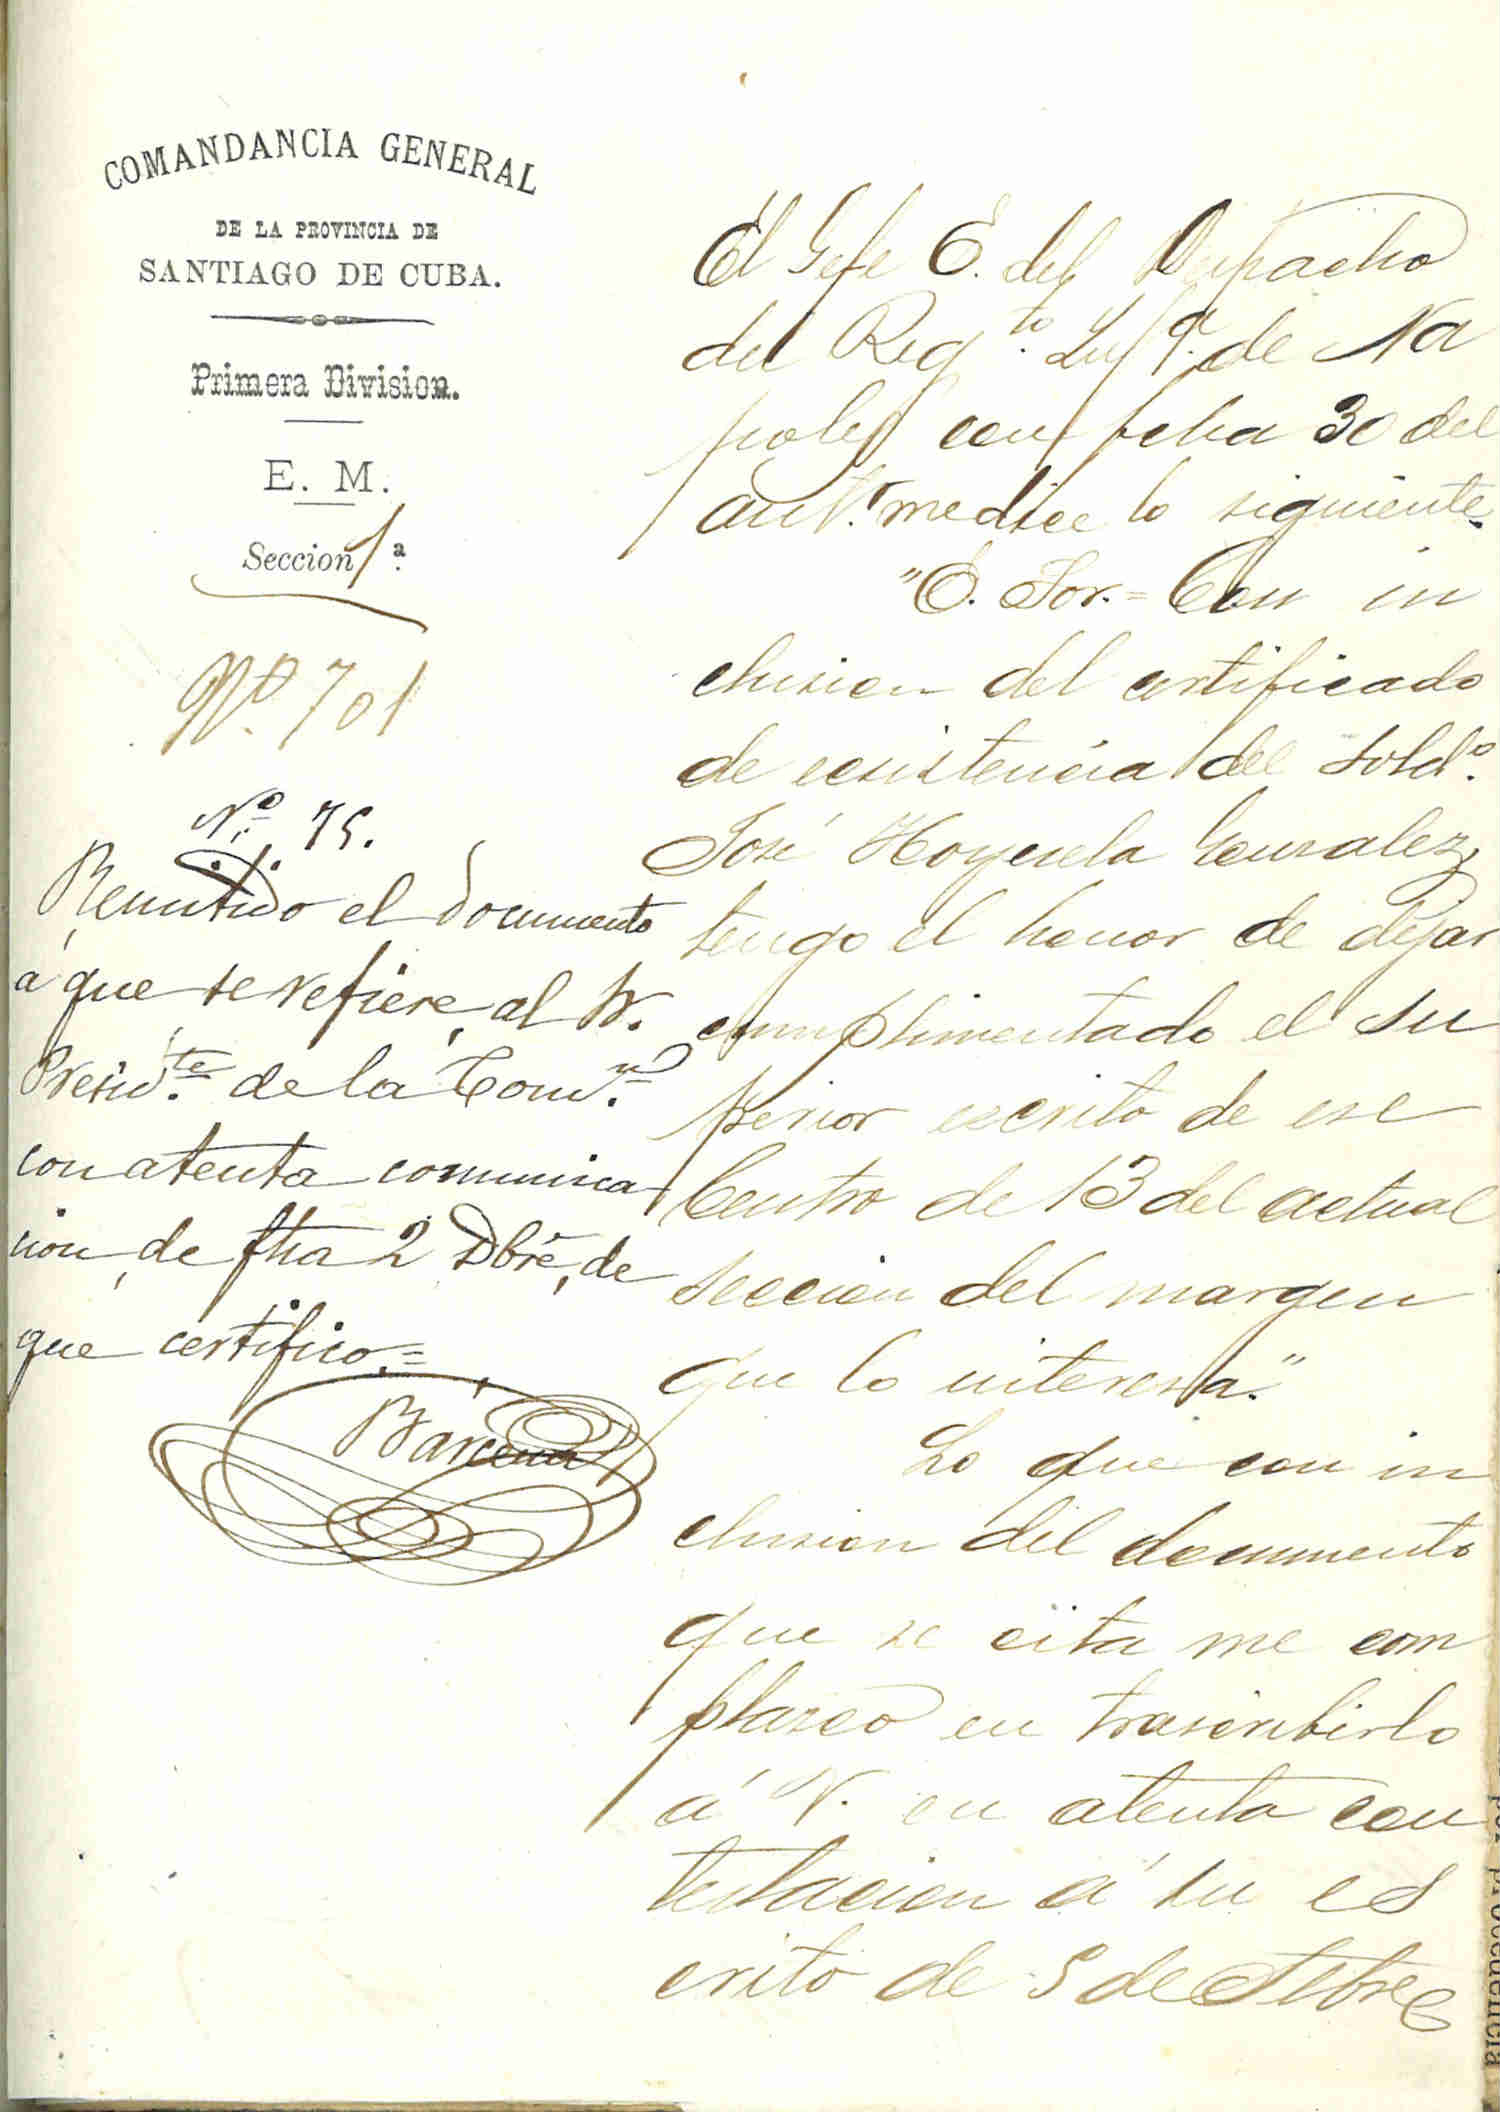 COMANDANCIA GENERAL
DE LA PROVINCIA DE
SANTIAGO DE CUBA.
Primera Division.
E. M.
Seccion 1ª.
Nº. 701
Nº. 75.
Remitido el documento
á que se refiere, al Sr.
Presidte. de la Comn.
con atenta comunica
cion de fha 2 Dbre, de
que certifico.=
Barcena
El Gefe E. del Despacho
del Regto. Infª. de Na
poles con fecha 30 del
antr. me dice lo siguiente.
"E. Sor.= Con in
clusion del certificado
de ecsistencia del soldº.
José Hoyuela Gonzalez,
tengo el honor de dejar
cumplimentado el su
perior escrito de ese
Centro de 13 del actual
seccion del margen
que lo interesa."
Lo que con in
clusion del documento
que se cita me com
plazco en trascribirlo
á V. en atenta con
testacion á su es
crito de 5 de Stbre
por procedencia